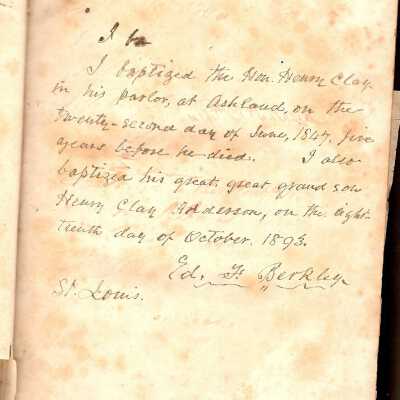 I ba
I baptized the Hon. Henry Clay
in his parlor, at Ashland, on the
twenty-second day of June, 1847, five
years before he died. I also
baptized his great, great grand son
Henry Clay Anderson, on the eigh-
teenth day of October. 1893.
Ed. F. Berkley.
St. Louis.